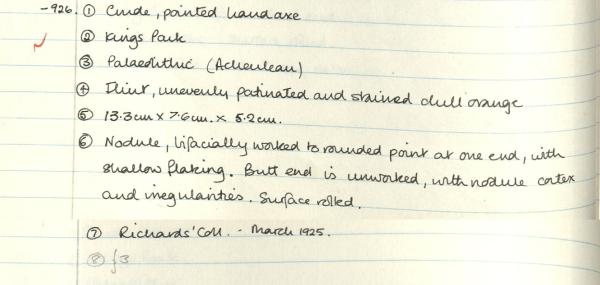 -926. ① Crude, pointed handaxe
② Kings Park
③ Palaeolithic (Acheulean)
④ Flint, unevenly patinated and stained dull orange
⑤ 13.3cm x 7.6cm. x 5.2cm.
⑥ Nodule, bifacially worked to rounded point at one end, with
shallow flaking. Butt end is unworked, with nodule cortex
and irregularities. Surface rolled.
⑦ Richards' Coll. - March 1925.
⑧ £3